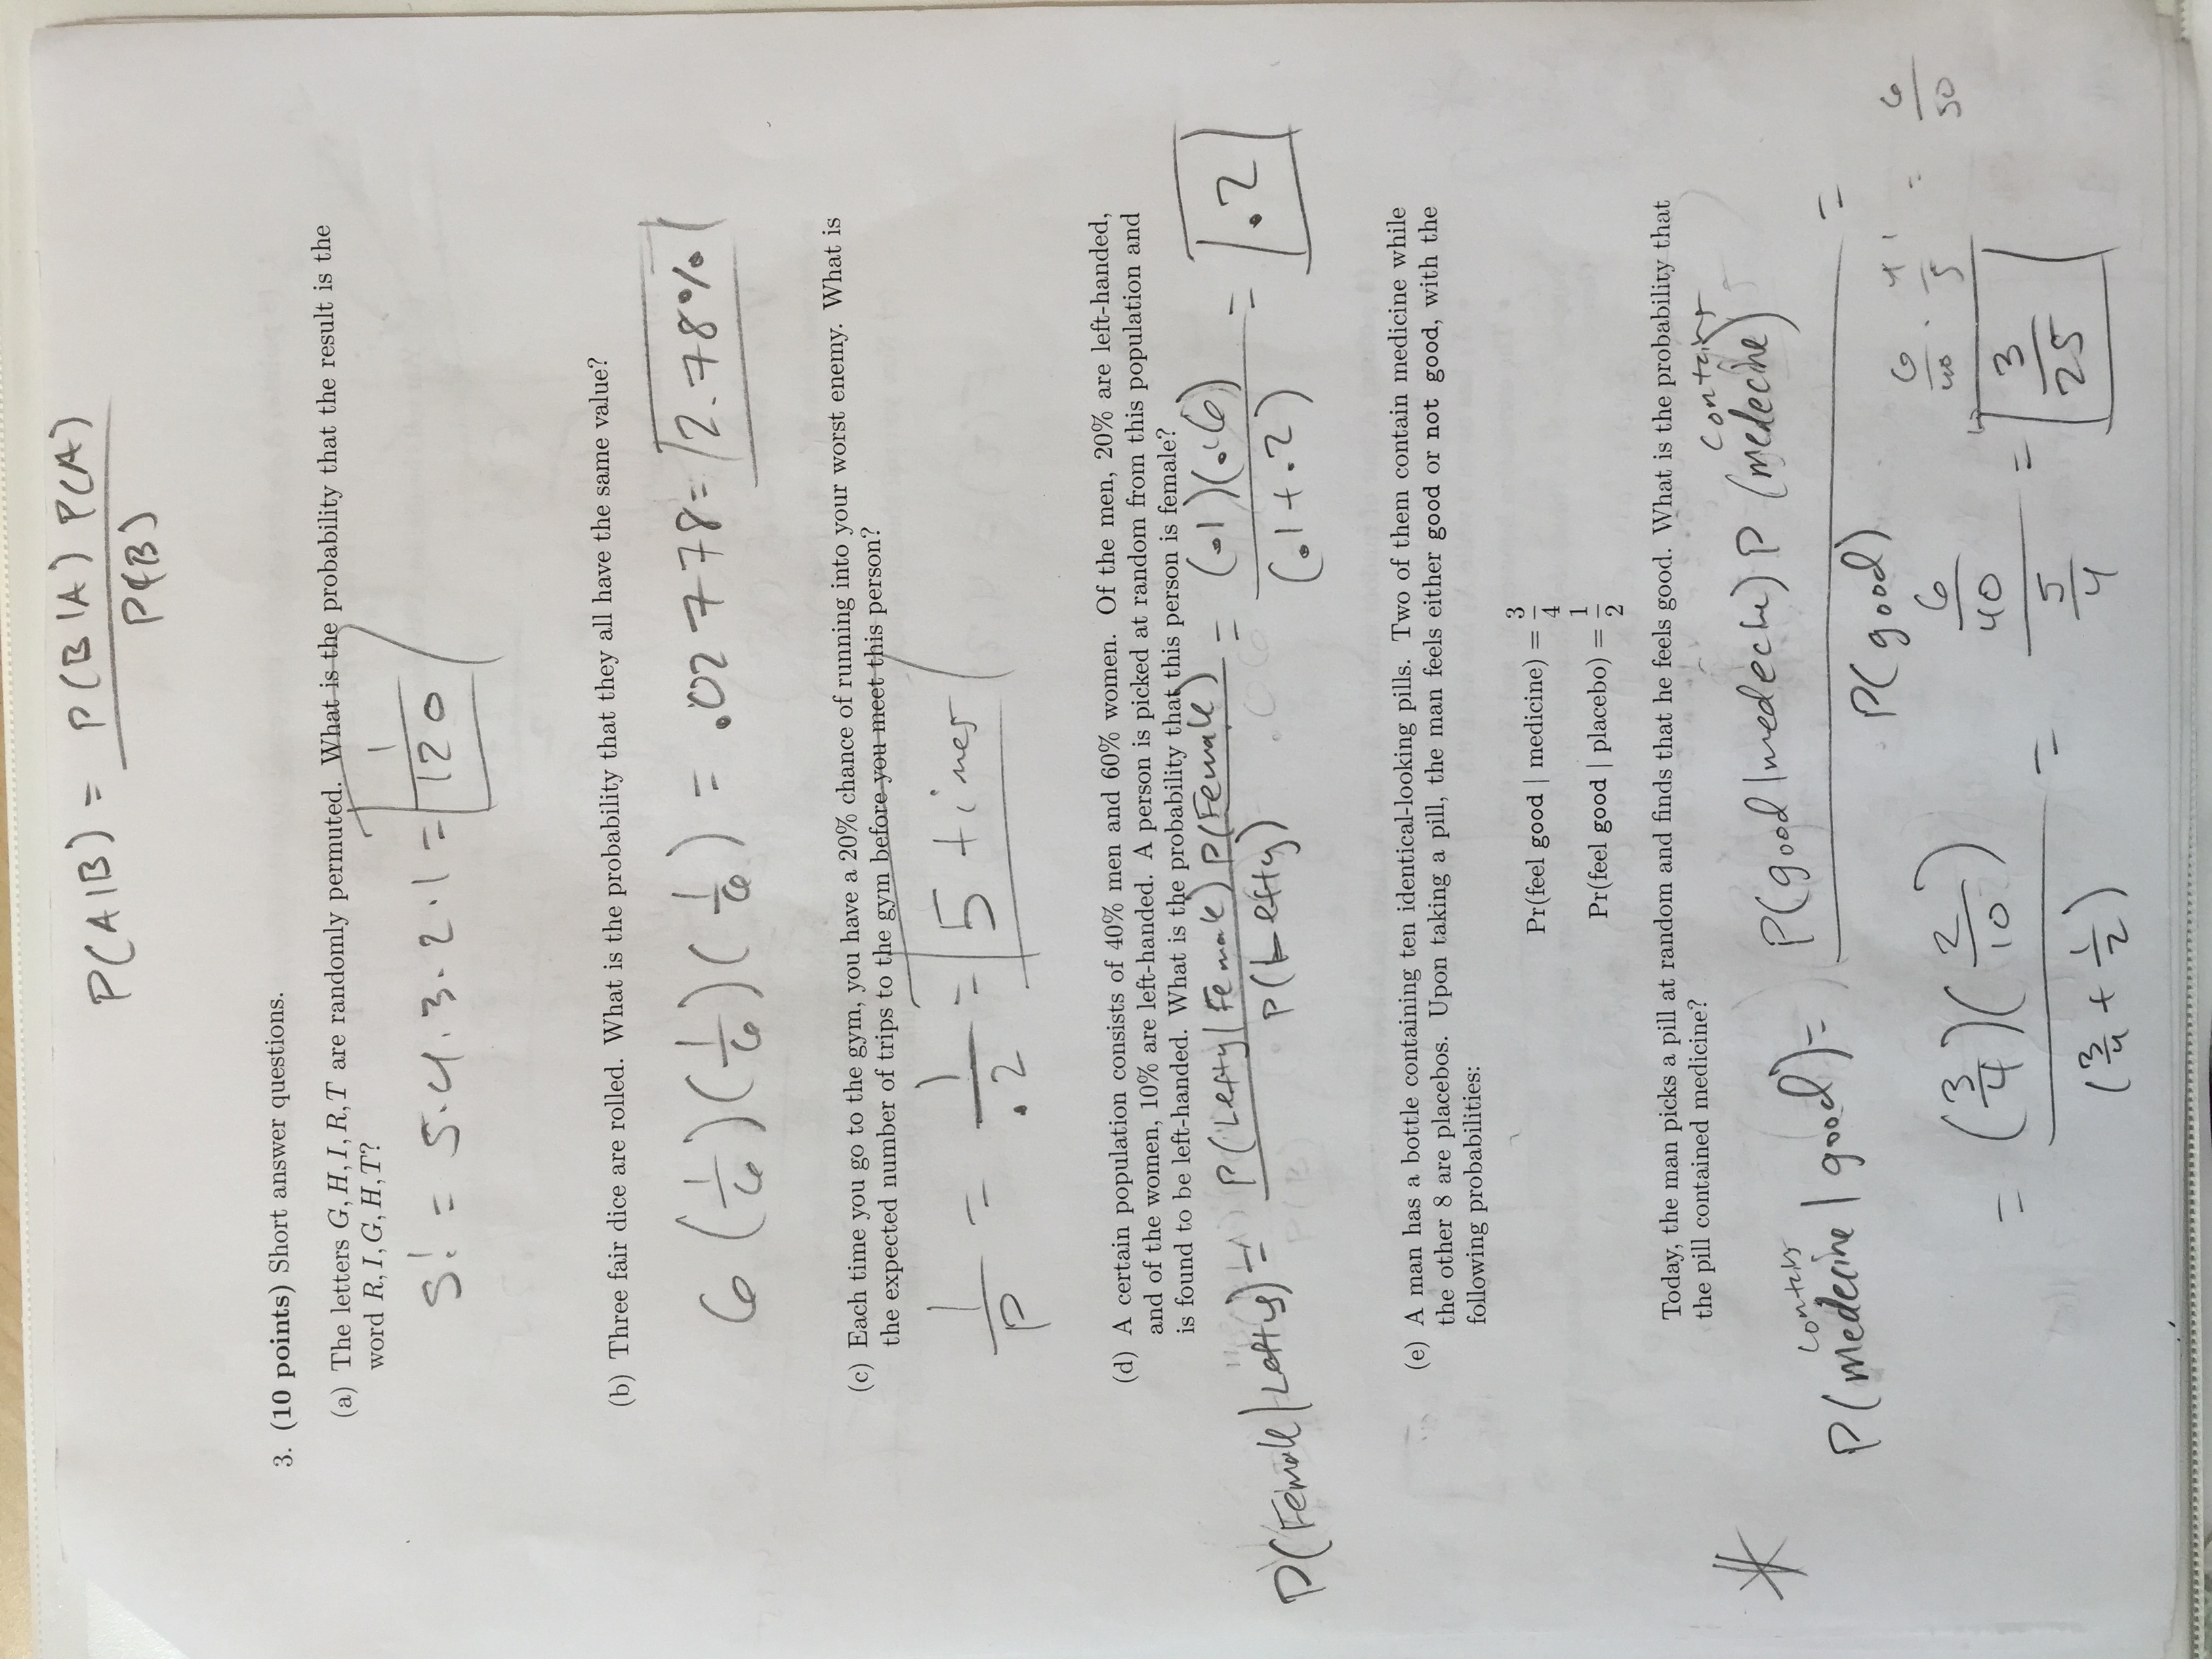 P(A|B) = P(B|A) P(A)
P(B)
3. (10 points) Short answer questions.
(a) The letters G, H, I, R, T are randomly permuted. What is the probability that the result is the
word R, I, G, H, T?
5! = 5·4·3·2·1 = 1/120
(b) Three fair dice are rolled. What is the probability that they all have the same value?
6 (1/6)(1/6)(1/6) = .02778 = 2.78%
(c) Each time you go to the gym, you have a 20% chance of running into your worst enemy. What is
the expected number of trips to the gym before you meet this person?
1/P = 1/.2 = 5 times
(d) A certain population consists of 40% men and 60% women. Of the men, 20% are left-handed,
and of the women, 10% are left-handed. A person is picked at random from this population and
is found to be left-handed. What is the probability that this person is female?
P(Female|Lefty) = P(Lefty|Female) P(Female) = (.1)(.6) = .2
P(Lefty) (.1+.2)
(e) A man has a bottle containing ten identical-looking pills. Two of them contain medicine while
the other 8 are placebos. Upon taking a pill, the man feels either good or not good, with the
following probabilities:
Pr(feel good | medicine) = 3/4
Pr(feel good | placebo) = 1/2
Today, the man picks a pill at random and finds that he feels good. What is the probability that
the pill contained medicine?
contains
P(good|medecine) P(medecine)
contains
P(medecine|good) = =
P(good)
6/40 · 4/5 = 6/50
= (3/4)(2/10) = 6/40 = 3/25
(3/4 + 1/2) 5/4